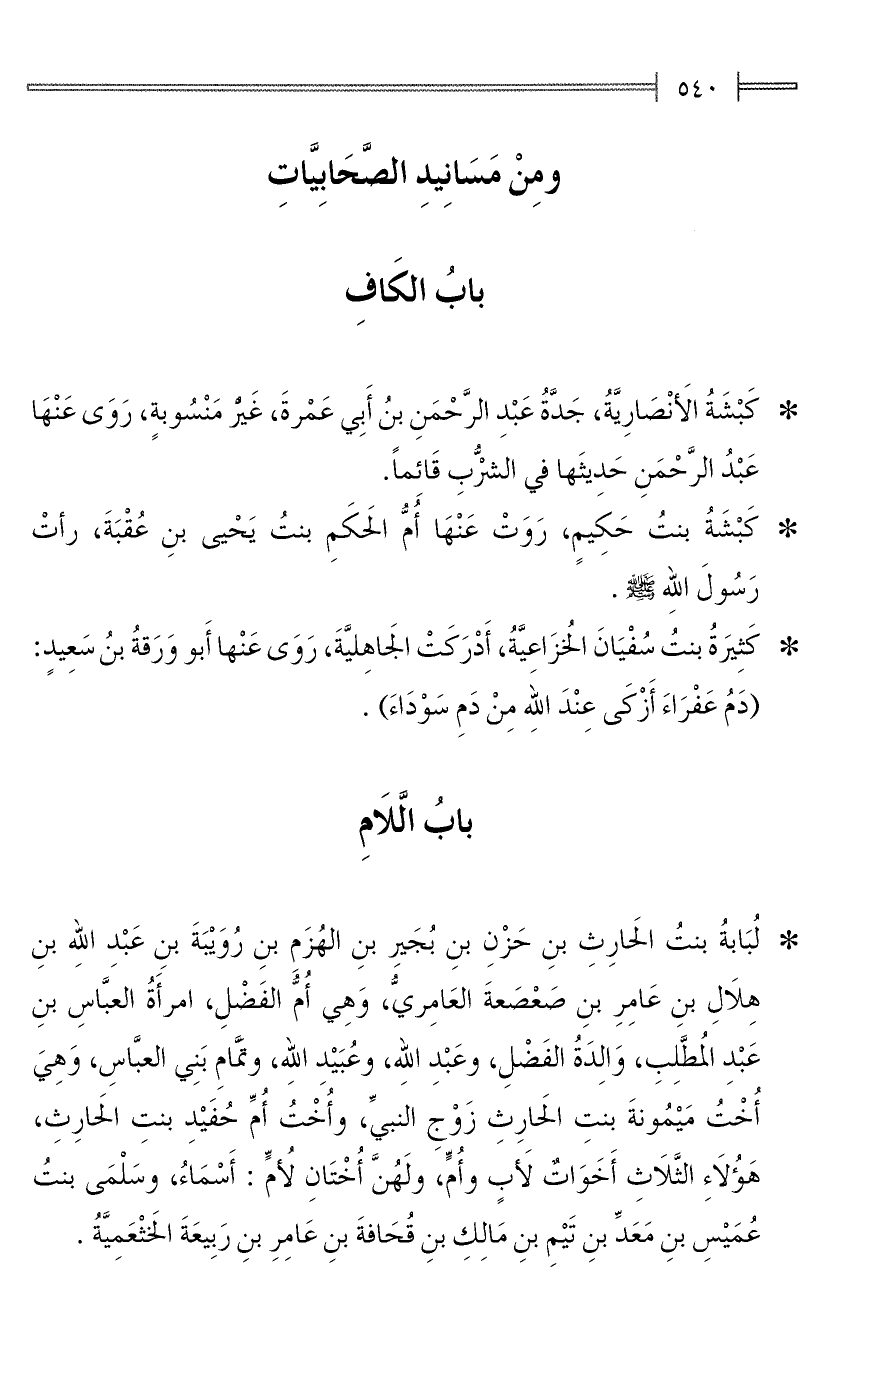 ٥٤٠
ومِنْ مَسَانِيدِ الصَّحَابِيَّاتِ
بابُ الكَافِ
* كَبْشَةُ الأَنْصَارِيَّةُ، جَدَّةُ عَبْدِ الرَّحْمَنِ بنُ أَبي عَمْرةَ، غَيرُ مَنْسُوبةٍ، رَوَى عَنْهَا
عَبْدُ الرَّحْمَنِ حَدِيثَها في الشرُّبِ قَائماً.
* كَبْشَةُ بنتُ حَكِيمٍ، رَوَتْ عَنْهَا أُمُّ الحَكَمِ بنتُ يَحْيى بنِ عُقْبَةَ، رأتْ
رَسُولَ اللهِ ﷺ .
* كَثِيرَةُ بنتُ سُفْيَانَ الخُزَاعِيَّةُ، أَدْرَكَتْ الجَاهليَّةَ، رَوَى عَنْها أَبو وَرَقةُ بنُ سَعِيدٍ:
(دَمُ عَفْرَاءَ أَزْكَى عِنْدَ اللهِ مِنْ دَمِ سَوْدَاءَ) .
بابُ الَّلاَمِ
* لُبَابةُ بنتُ الحَارِثِ بنِ حَزْنِ بنِ بُجَيرِ بنِ الهُزَمِ بنِ رُوَيْبَةَ بنِ عَبْدِ اللهِ بنِ
هِلَالِ بنِ عَامِرِ بنِ صَعْصَعةَ العَامِريُّ، وَهِي أُمُّ الفَضْلِ، امرأَةُ العبَّاسِ بنِ
عَبْدِ المُطَّلِبِ، وَالِدَةُ الفَضْلِ، وعَبْدِ اللهِ، وعُبَيْدِ اللهِ، وتمَّامِ بَنِي العبَّاسِ، وَهِيَ
أُخْتُ مَيْمُونةَ بنتِ الحَارِثِ زَوْجِ النبيِّ، وأُخْتُ أُمِّ حُفَيْدِ بنتِ الحَارِثِ،
هَؤُلَاءِ الثَّلَاثِ أَخَوَاتٌ لأَبٍ وأُمٍّ، ولَهُنَّ أُخْتَانِ لُأمٍّ : أَسْمَاءُ، وسَلْمَى بنتُ
عُمَيْسِ بنِ مَعَدِّ بنِ تَيْمِ بنِ مَالِكِ بنِ قُحَافةَ بنِ عَامِرِ بنِ رَبِيعَةَ الخَثْعَمِيَّةُ .